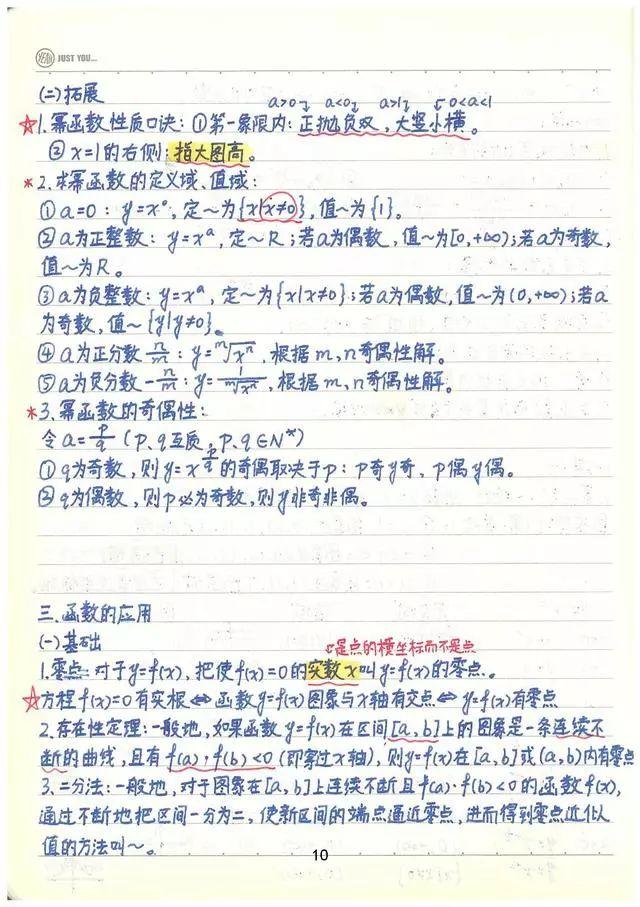 JUST YOU...
(二)拓展
a>0 a<0 a>1 0<a<1
☆1.幂函数性质口诀：①第一象限内：正抛负双，大竖小横。
② x=1的右侧：指大图高。
*2.求幂函数的定义域、值域：
① a=0：y=x⁰，定~为{x|x≠0}，值~为{1}。
② a为正整数：y=xᵃ，定~R；若a为偶数，值~为[0,+∞)；若a为奇数，
值~为R。
③ a为负整数：y=xᵃ，定~为{x|x≠0}；若a为偶数，值~为(0,+∞)；若a
为奇数，值~{y|y≠0}。
④ a为正分数 n/m：y=ᵐ√xⁿ，根据m,n奇偶性解。
⑤ a为负分数 -n/m：y=1/ᵐ√xⁿ，根据m,n奇偶性解。
*3.幂函数的奇偶性：
令a=p/q (p、q互质，p、q∈N*)
① q为奇数，则y=x^(p/q)的奇偶取决于p：p奇y奇，p偶y偶。
② q为偶数，则p必为奇数，则y非奇非偶。
三.函数的应用
(一)基础
是点的横坐标而不是点
1.零点：对于y=f(x)，把使f(x)=0的实数x叫y=f(x)的零点。
☆方程f(x)=0有实根⇔函数y=f(x)图象与x轴有交点⇔y=f(x)有零点
2.存在性定理：一般地，如果函数y=f(x)在区间[a,b]上的图象是一条连续不
断的曲线，且有f(a)·f(b)<0(即穿过x轴)，则y=f(x)在[a,b]或(a,b)内有零点
3.二分法：一般地，对于图象在[a,b]上连续不断且f(a)·f(b)<0的函数f(x)，
通过不断地把区间一分为二，使新区间的端点逼近零点，进而得到零点近似
值的方法叫~。
10